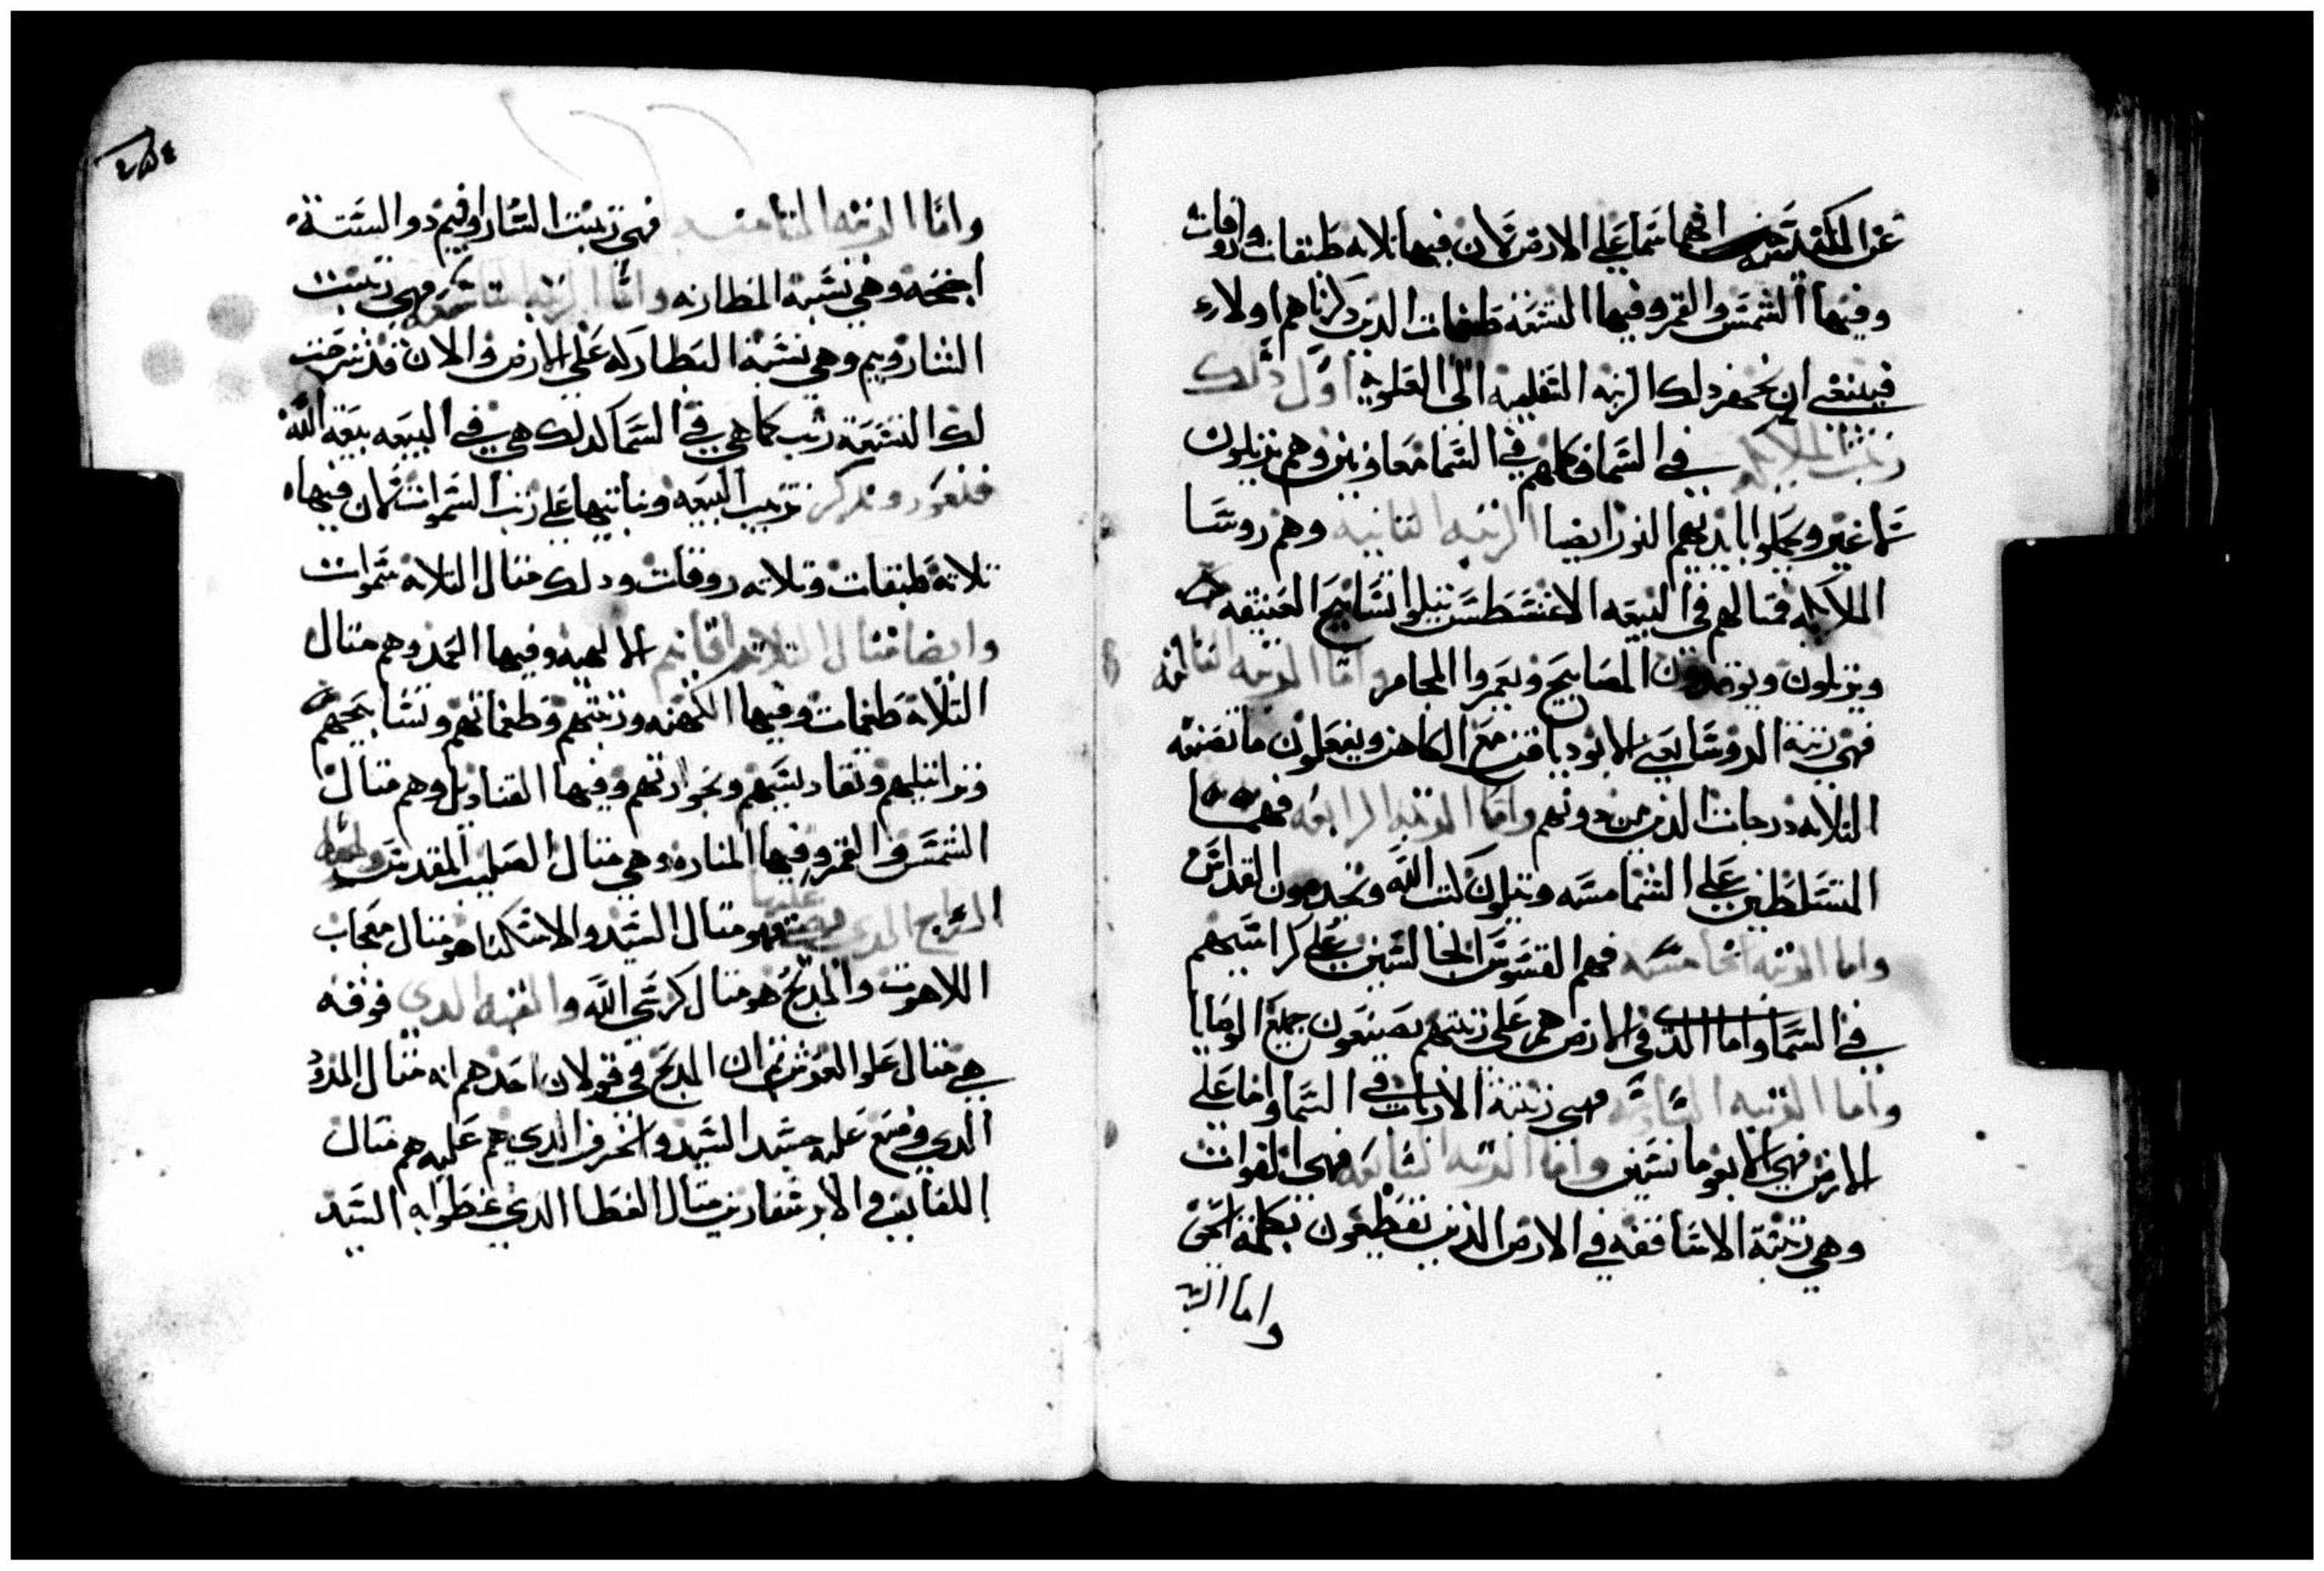 عن الكنيسه انها سما على الارض لان فيها ثلاثه طبقات وروقات
وفيها الشمس والقمر وفيها التسعه طغمات الذين ذكرناهم اولاء
فينبغي ان ذلك الرتبه السفليه الى العلويه اول ذلك
رتبت الملايكه في السما فكلهم في السما معاونين وهم يرتلون
ويحملوا بايديهم النور ايضا الرتبه الثانيه وهم روسا
الملايكه فمثالهم في البيعه الاغنسطسين يتلوا تسابيح العتيقه
ويرتلون ويوقدون المصابيح ويعمروا المجامر واما الرتبه الثالثه
فهي رتبة الروسا يعني الابودياقنين مع الكاهن ويفعلون ما تصنعه
الثلاثه درجات الذين من دونهم واما الرتبه الرابعه فهما
المتسلطين على الشمامسه ويتلون كتب الله ويخدمون القداس
واما الرتبه الخامسه فهم القسوس الجالسين على كراسيهم
في السما واما الذي في الارض هم على رتبتهم يصنعون جميع الوصايا
واما الرتبه السادسه فهي رتبة الارباب في السما واما على
الارض فهي الايغومانسين واما الرتبه السابعه فهي القوات
وهي رتبة الاساقفه في الارض الذين يقطعون بكلمة الحق
واما الرتبه
واما الرتبه الثامنه فهي رتبت الساراوفيم ذو الستة
اجنحه وهي تشبه المطارنه واما الرتبه التاسعه فهي رتبت
الشاروبيم وهي تشبه البطاركه على الارض والان قد شرحت
لك التسعة رتب كما هي في السما كذلك هي في البيعه بيعة الله
فنعود ونذكر ترتيب البيعه ونباتيها على رتب السموات لان فيها
ثلاثة طبقات وثلاثه روقات وذلك مثال الثلاثه سموات
وايضا مثال الثلاثه اقانيم الالهيه وفيها العمد وهم مثال
الثلاثة طغمات وفيها الكهنه ورتبتهم وطغماتهم وتسابيحهم
وتراتيلهم وتقاديسهم وبخوراتهم وفيها القناديل وهم مثال
الشمس والقمر وفيها المناره وهي مثال الصليب المقدس
السراج الذي عليها فهو مثال السيد والاسكنا هو مثال حجاب
اللاهوت والمذبح هو مثال كرسي الله والقبه الذي فوقه
هي مثال علو العرش ثم ان المذبح في قولان احدهم انه مثال المذود
الذي وضع عليه جسد السيد والخرق الذي هم عليه هم مثال
اللفايف والابرسفارين مثال الغطا الذي غطوا به السيد